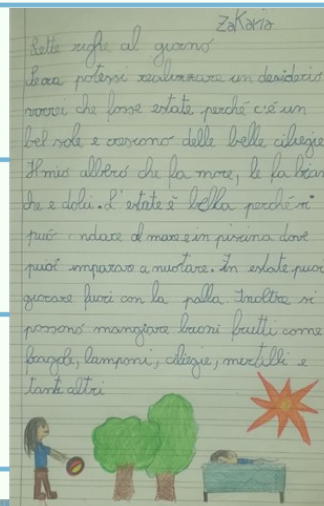 Zakaria
Sette righe al giorno
Se ora potessi realizzare un desiderio
vorrei che fosse estate perché c'è un
bel sole e crescono delle belle ciliegie
Il mio alberò che fa more, le fa bian
che e dolci. L'estate è bella perché si
può andare al mare e in piscina dove
puoi imparare a nuotare. In estate puoi
giocare fuori con la palla. Inoltre si
possono mangiare buoni frutti come
fragole, lamponi, ciliegie, mertilli e
tanti altri